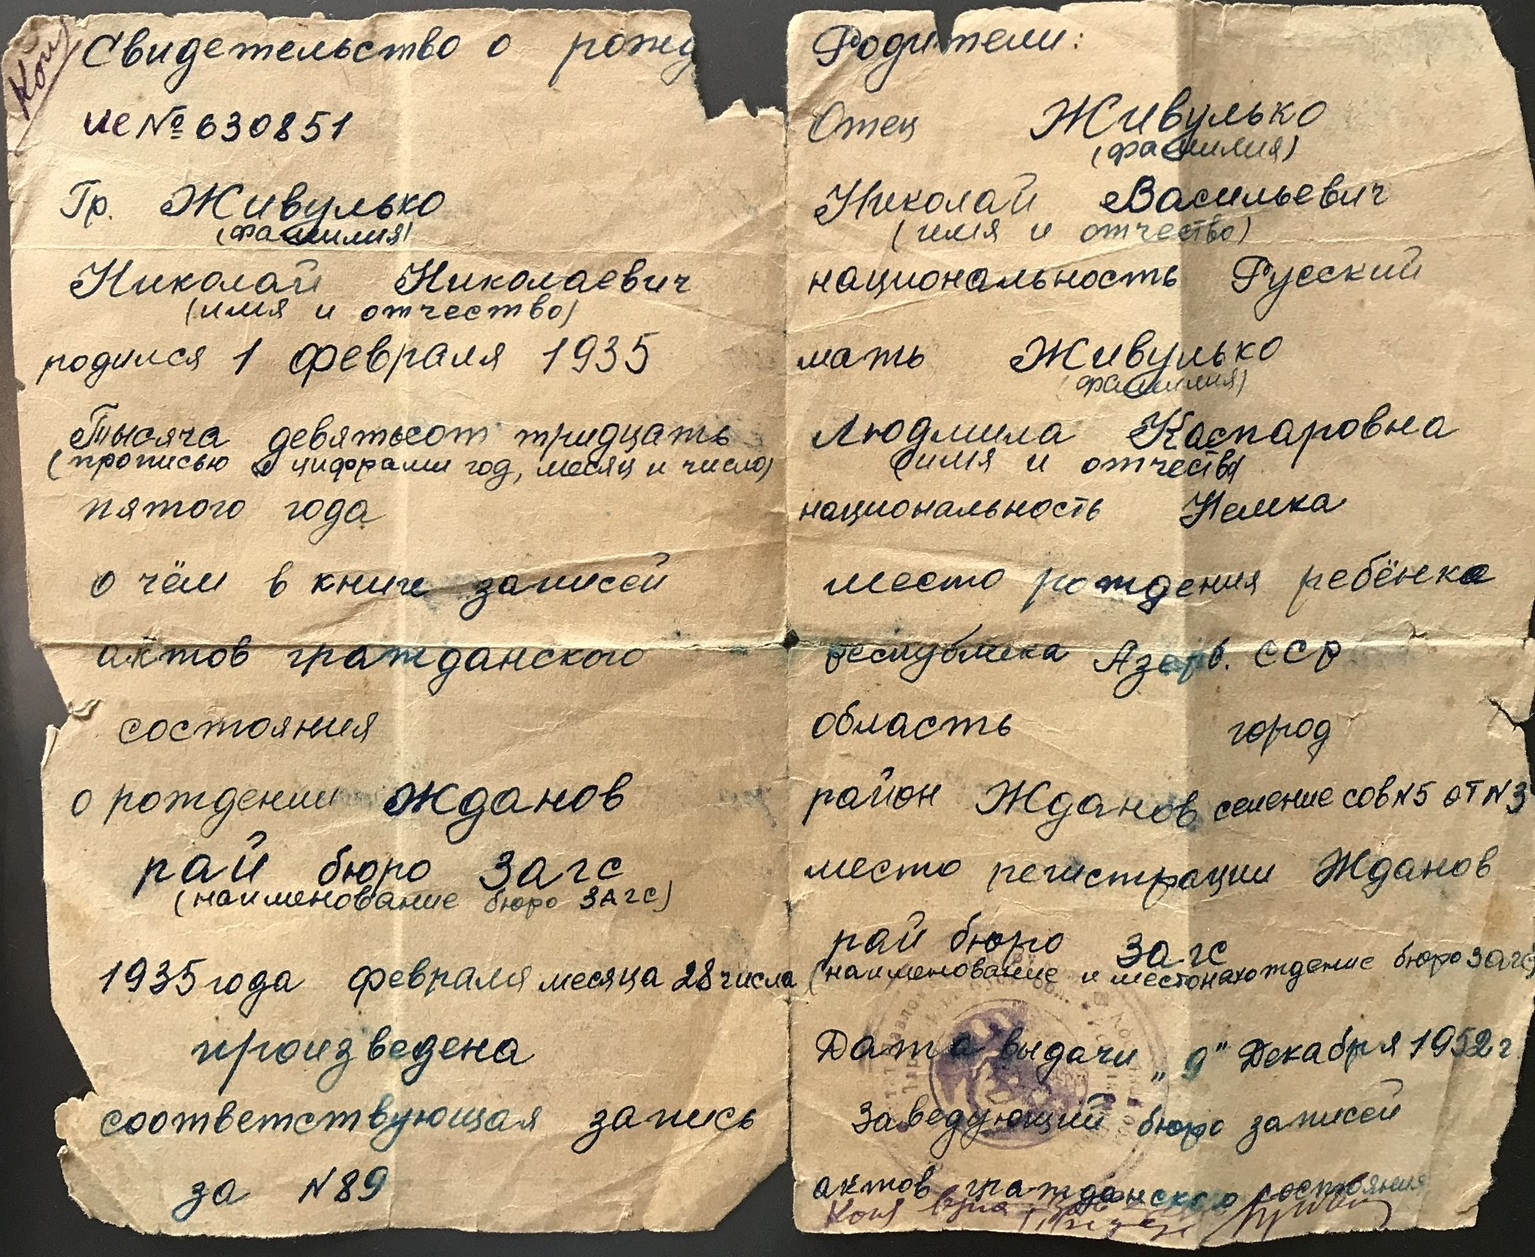 Копия
Свидетельство о рожд
ИЕ № 630851
Гр. Живулько
(фамилия)
Николай Николаевич
(имя и отчество)
родился 1 февраля 1935
Тысяча девятьсот тридцать
(прописью и цифрами год, месяц и число)
пятого года
о чём в книге записей
актов гражданского
состояния
о рождении Жданов
рай бюро Загс
(наименование бюро ЗАГС)
1935 года февраля месяца 28 числа
произведена
соответствующая запись
за N 89
Родители:
Отец Живулько
(фамилия)
Николай Васильевич
(имя и отчество)
национальность Русский
мать Живулько
(фамилия)
Людмила Каспаровна
(имя и отчество)
национальность Немка
место рождения ребёнка
республика Азерб. ССР
область город
район Жданов селение сов N5 от N3
место регистрации Жданов
рай бюро Загс
(наименование и местонахождение бюро загс)
Дата выдачи „9" Декабря 1952 г
Заведующий бюро записей
актов гражданского состояния
Копия верна